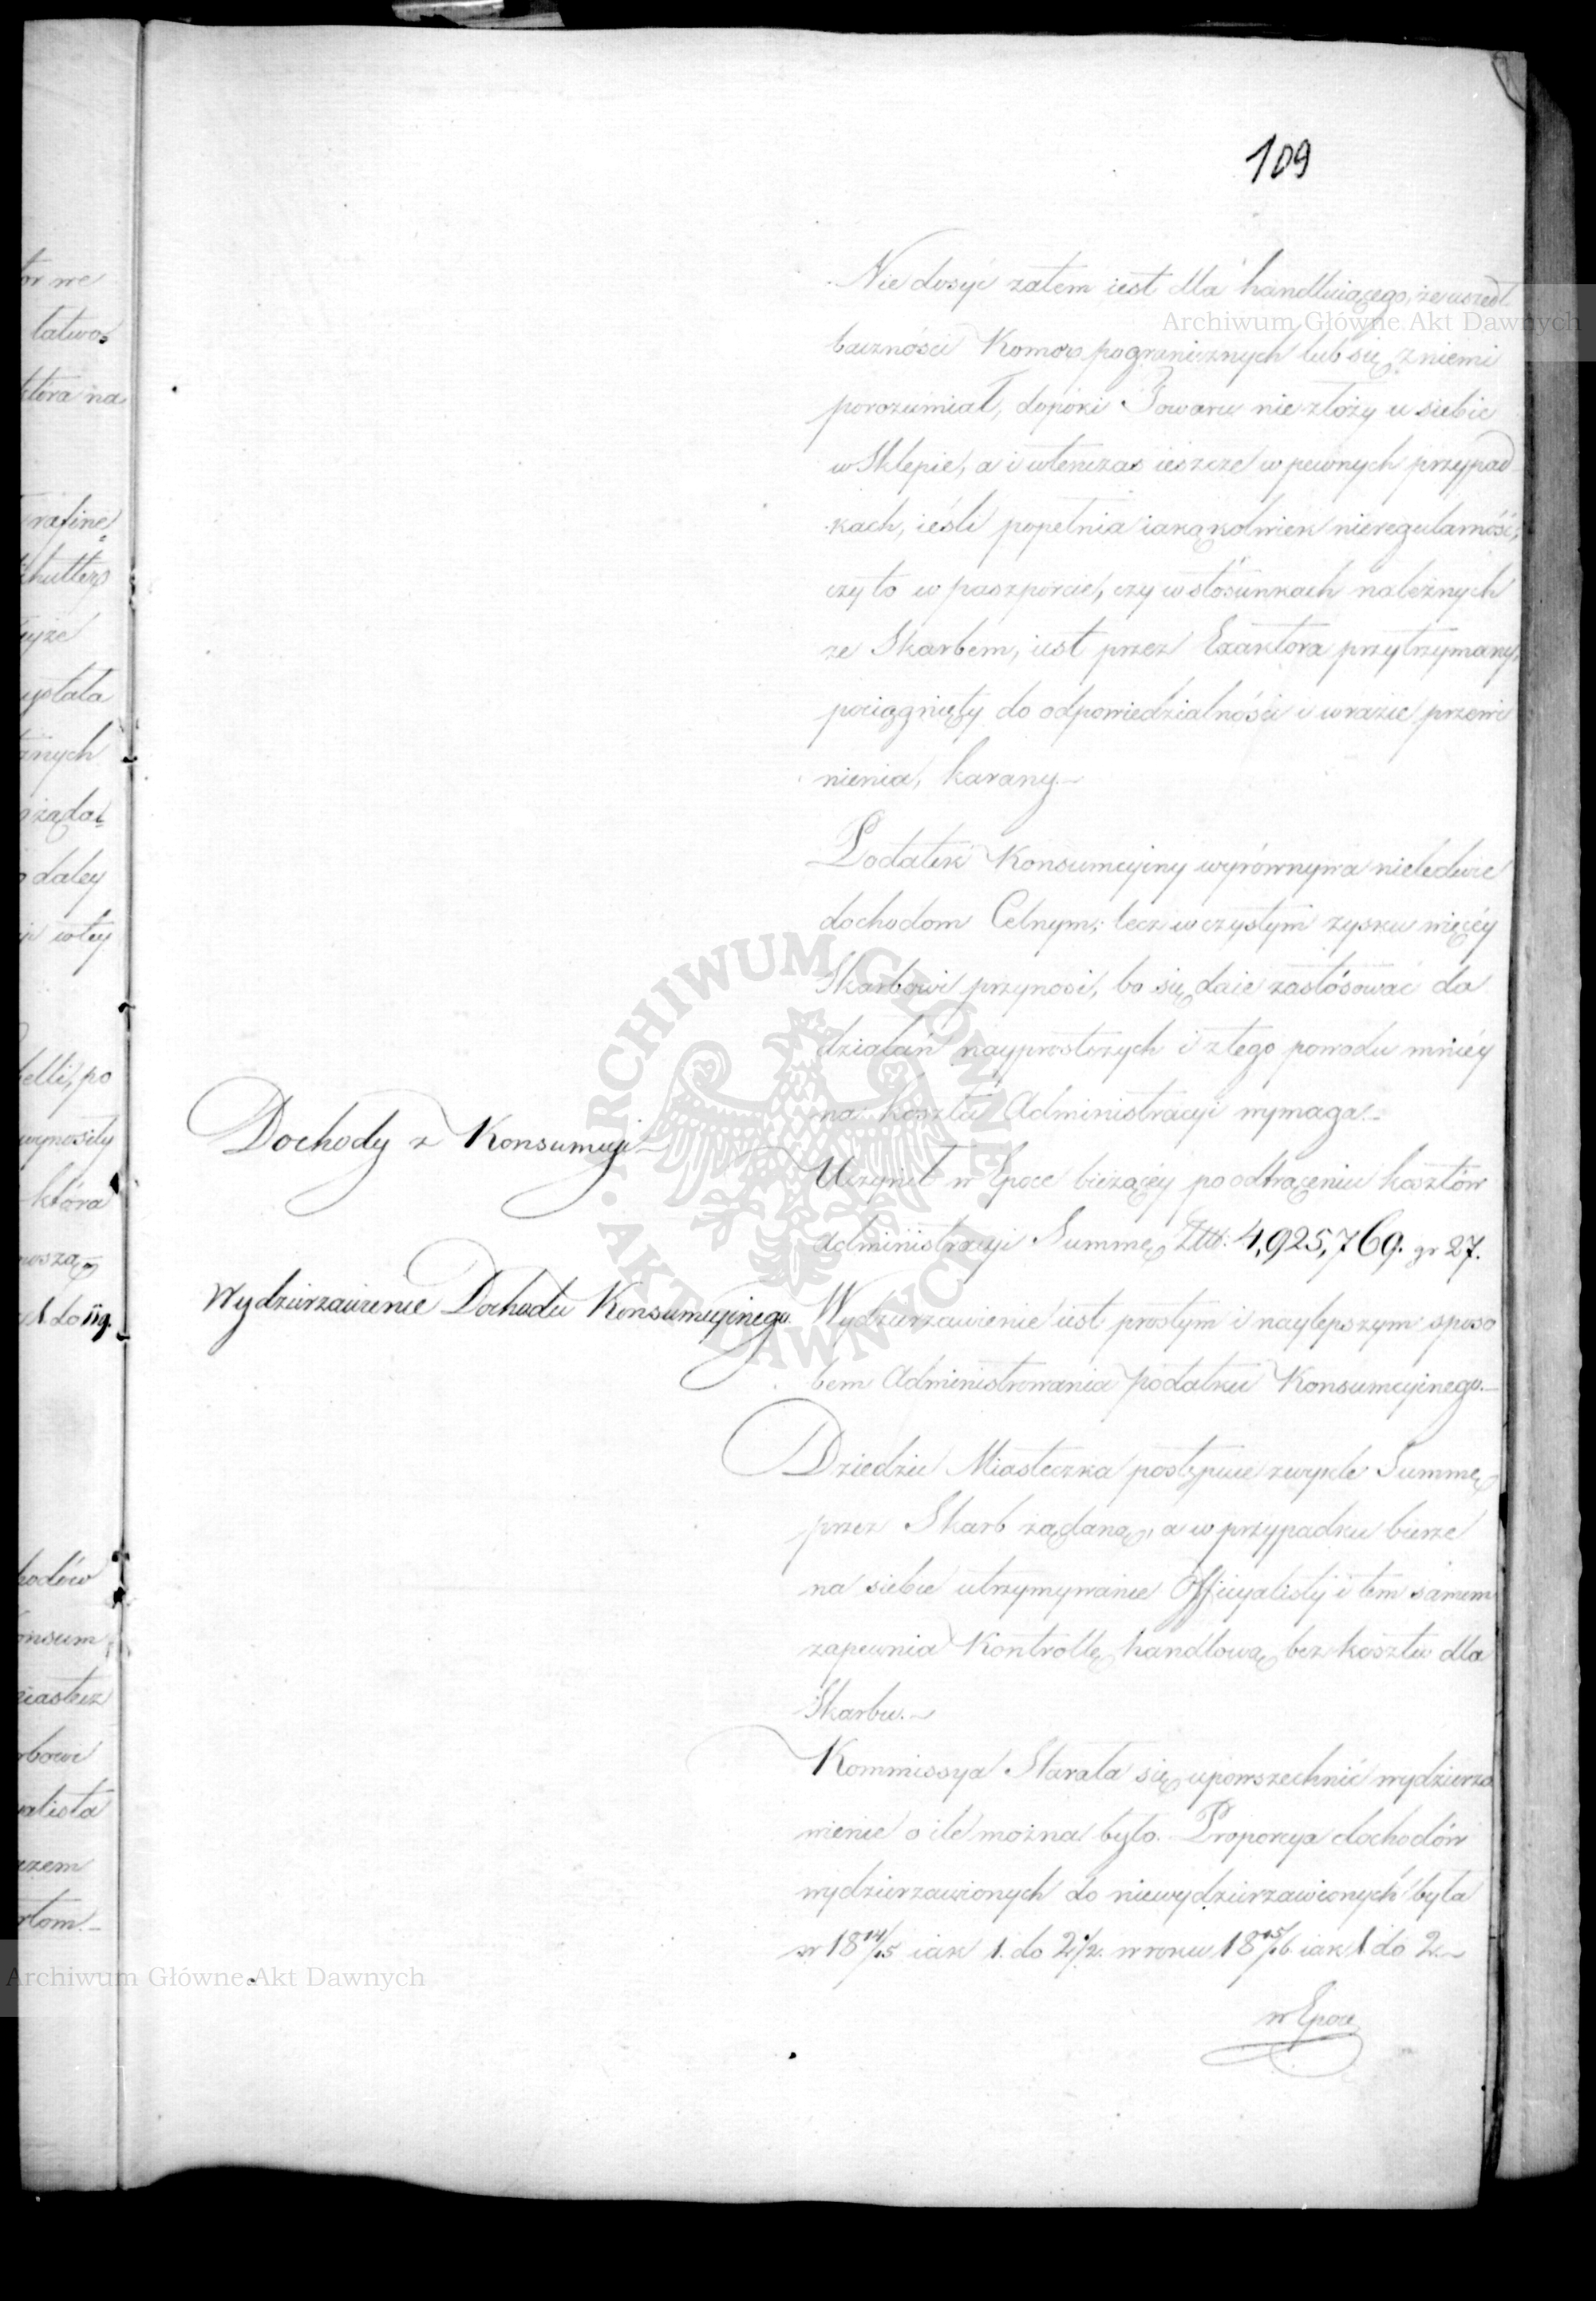 109
Nie dosyć zatem iest dla handluiącego, że uszedł
baczności Komor pogranicznych lub się z niemi
porozumiał, dopóki Towaru nie złoży u siebie
w Sklepie, a i wtenczas ieszcze w pewnych przypad
kach, ieśli popełnia iakąkolwiek nieregularność,
czy to w paszporcie, czy w stósunkach należnych
ze Skarbem, iest przez Exaktora przytrzymany,
pociągnięty do odpowiedzialności i w razie przewi
nienia, karany.
Podatek Konsumcyiny wyrównywa nieledwie
dochodom Celnym, lecz w czystym zysku więcéy
Skarbowi przynosi, bo się daie zastósować do
działań nayprostszych i z tego powodu mniéy
na koszta Administracyi wymaga.
Dochody z Konsumcyi
Uczynił w Epoce bieżącéy po odtrąceniu kosztów
Administracyi Summę Złtt: 4,925,769. gr 27.
Wydzierzawienie Dochodu Konsumcyinego.
Wydzierzawienie iest prostym i naylepszym sposo
bem Administrowania podatku Konsumcyinego.
Dziedzic Miasteczka postępuie zwykle Summę
przez Skarb żądaną, a w przypadku bierze
na siebie utrzymywanie Officyalisty i tem samem
zapewnia Kontrollę handlową bez kosztu dla
Skarbu.
Kommissya Starała się upowszechnić wydzierza
wienie o ile można było. Proporcya dochodów
wydzierzawionych do niewydzierzawionych była
w 18 14/15 iak 1. do 2 1/2. w roku 18 15/16 iak 1 do 2.
w Epoce
tor we
łatwo
która na
rafine
yże
ystała
żąda
daley
w tey
elli, po
wynosiły
która
noszą
1 do 119.
hodów
onsum
iastecz
rbowi
alista
razem
rtom.
Archiwum Główne Akt Dawnych
ARCHIWUM GŁÓWNE AKT DAWNYCH
Archiwum Główne Akt Dawnych